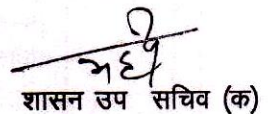 शासन उप सचिव (क)